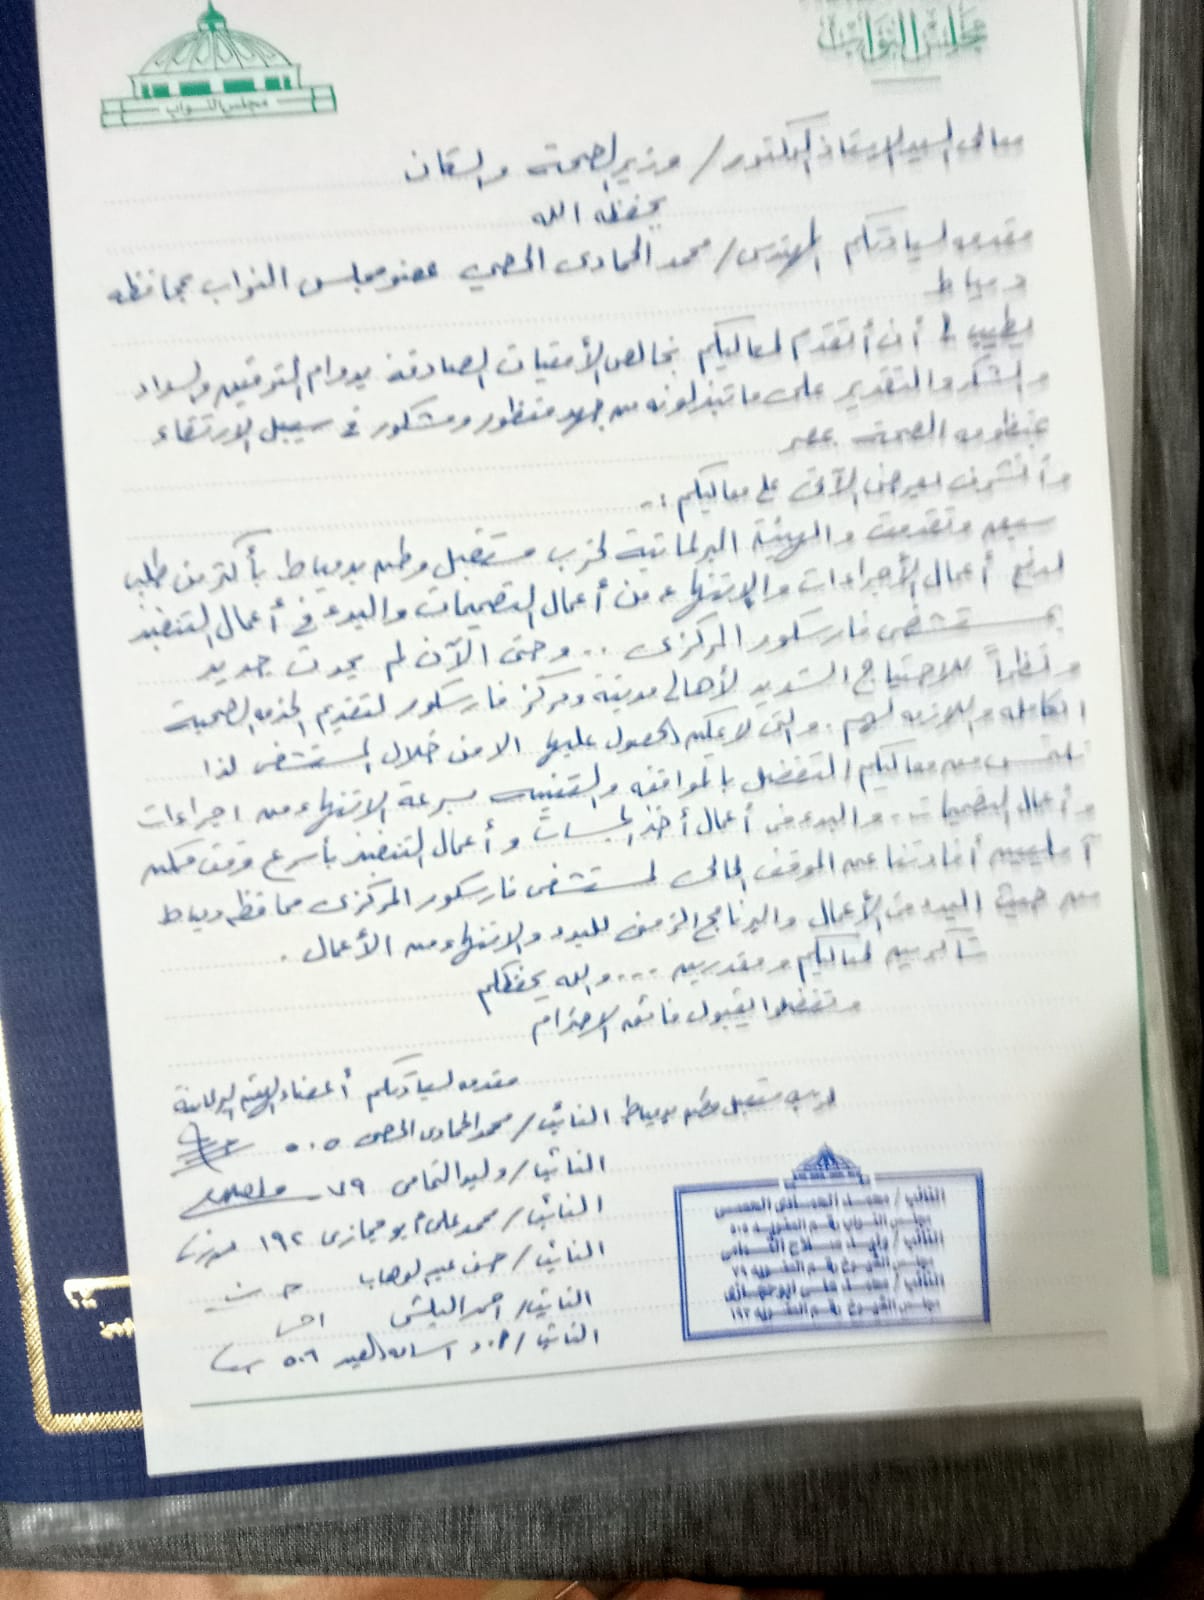 مجلس النواب
مجلس النواب
معالى السيد الاستاذ الدكتور / وزير الصحة والسكان
يحفظه الله
مقدمه لسيادتكم المهندس / محمد الحمادى الحصي عضو مجلس النواب بمحافظه
دمياط
يطيب لى أن أتقدم لمعاليكم بخالص الأمنيات الصادقة بدوام التوفيق والسداد
والشكر والتقدير على ما تبذلونه من جهد منظور ومشكور فى سبيل الارتقاء
بمنظومه الصحة بمصر
وأتشرف بعرض الآتى على معاليكم :..
سبق وتقدمت والهيئة البرلمانية لحزب مستقبل وطن بدمياط بأكثر من طلب
لدفع أعمال الأجراءات والإنتهاء من أعمال التصميمات والبدء فى أعمال التنفيذ
بمستشفى فارسكور المركزى .. وحتى الآن لم يحدث جديد
ونظراً للاحتياج الشديد لأهالى مدينة ومركز فارسكور لتقديم الخدمه الصحية
الكامله واللازمه لهم . والتى لا يمكن الحصول عليها الا من خلال المستشفى لذا
نلتمس من معاليكم التفضل بالموافقه والتنبيه بسرعة الانتهاء من اجراءات
وأعمال التصميمات . والبدء فى أعمال أخذ الجسات وأعمال التنفيذ بأسرع وقت ممكن
آملين أفادتنا عن الموقف الحالى لمستشفى فارسكور المركزى محافظه دمياط
من حيث البدء فى الأعمال والبرنامج الزمنى للبدء والانتهاء من الأعمال .
شاكرين لمعاليكم ومقدرين .... والله يحفظكم
وتفضلوا بقبول فائق الاحترام
مقدمه لسيادتكم أعضاء الهيئه البرلمانية
لحزب مستقبل وطن بدمياط النائب / محمد الحمادى الحصى ٥٠٥
النائب / وليد التمامى ٧٩
النائب / محمد على أبو حجازى ١٩٢
النائب / حسن عبد الوهاب
النائب / احمد البلشى
النائب / ٥٠٦
النائب / محمد الحمادى الحصى
مجلس النواب رقم العضويه ٥٠٥
النائب / وليد صلاح التمامى
مجلس الشيوخ رقم العضويه ٧٩
النائب / محمد على ابوحجازى
مجلس الشيوخ رقم العضويه ١٩٢